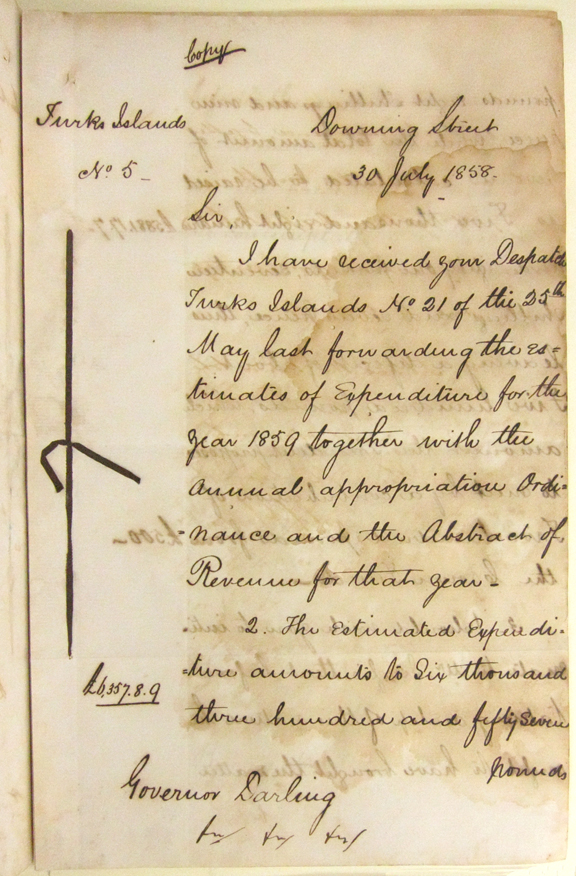 Copy
Turks Islands
No. 5 -
Downing Street
30 July 1858.
Sir,
I have received your Despatch
Turks Islands No. 21 of the 25th
May last forwarding the es=
timates of Expenditure for the
year 1859 together with the
Annual appropriation Ordi=
=nance and the Abstract of
Revenue for that year -
2. The Estimated Expendi=
=ture amounts to Six thousand
£6,357.8.9
three hundred and fifty seven
pounds
Governor Darling